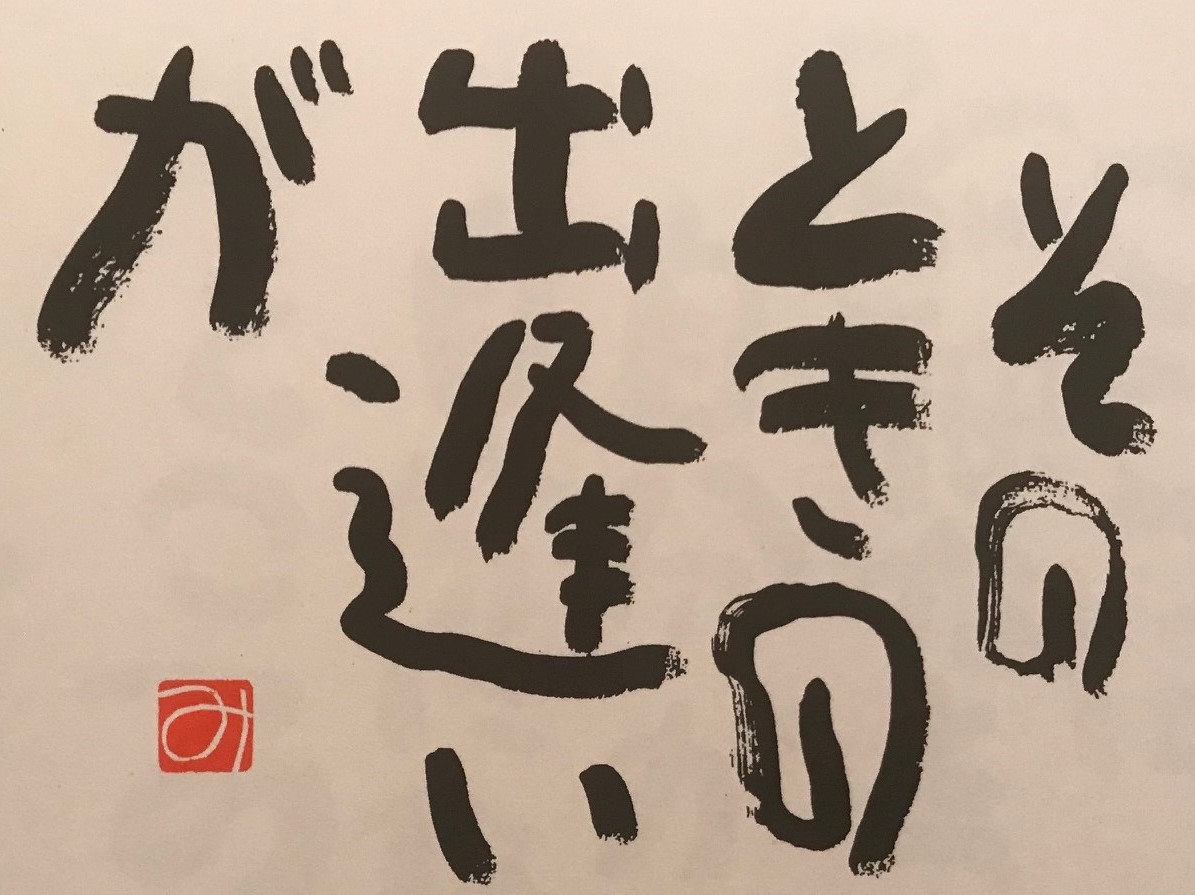 その
ときの
出逢い
が
み